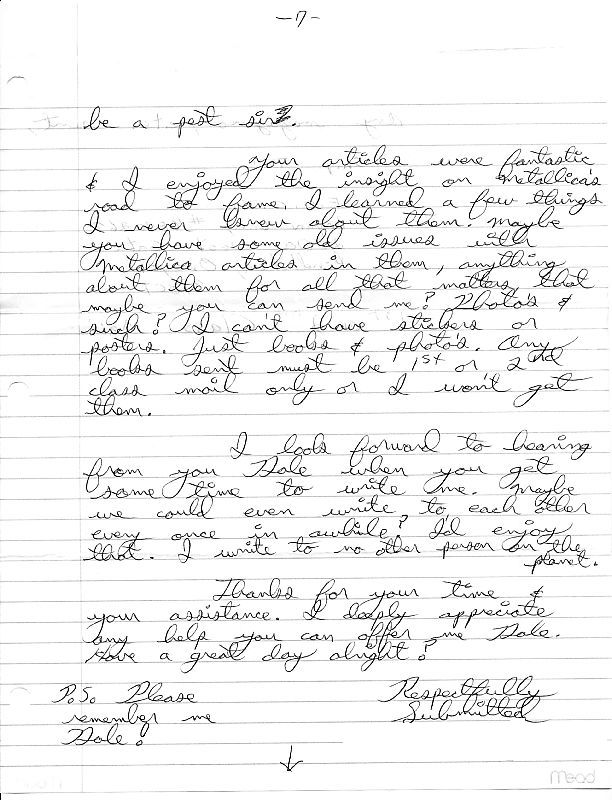 -7-
be a pest sir.
Your articles were fantastic
& I enjoyed the insight on Metallica's
road to fame, I learned a few things
I never knew about them. Maybe
you have some old issues with
Metallica articles in them, anything
about them for all that matters, that
maybe you can send me? Photo's &
such? I can't have stickers or
posters. Just books & photo's. Any
books sent must be 1st or 2nd
class mail only or I won't get
them.
I look forward to hearing
from you Dale when you get
some time to write me. Maybe
we could even write to each other
every once in awhile? I'd enjoy
that. I write to no other person on the
planet.
Thanks for your time &
your assistance. I deeply appreciate
any help you can offer me Dale.
Have a great day alright?
P.S. Please
remember me
Dale!
Respectfully
Submitted
↓
Mead